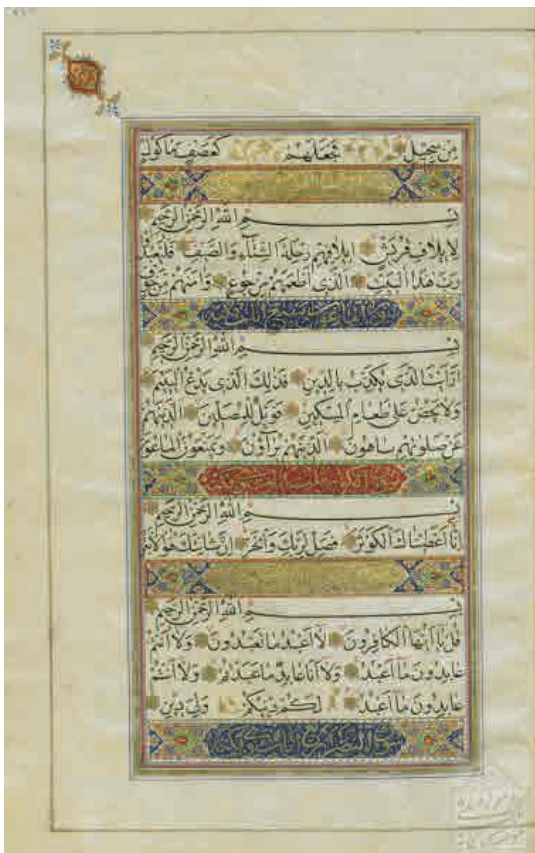 مِنْ سِجِّيلٍ فَجَعَلَهُمْ كَعَصْفٍ مَأْكُولٍ
بِسْمِ اللَّهِ الرَّحْمَنِ الرَّحِيمِ
لِإِيلَافِ قُرَيْشٍ إِيلَافِهِمْ رِحْلَةَ الشِّتَاءِ وَالصَّيْفِ فَلْيَعْبُدُوا
رَبَّ هَذَا الْبَيْتِ الَّذِي أَطْعَمَهُمْ مِنْ جُوعٍ وَآمَنَهُمْ مِنْ خَوْفٍ
بِسْمِ اللَّهِ الرَّحْمَنِ الرَّحِيمِ
أَرَأَيْتَ الَّذِي يُكَذِّبُ بِالدِّينِ فَذَلِكَ الَّذِي يَدُعُّ الْيَتِيمَ
وَلَا يَحُضُّ عَلَى طَعَامِ الْمِسْكِينِ فَوَيْلٌ لِلْمُصَلِّينَ الَّذِينَ هُمْ
عَنْ صَلَوتِهِمْ سَاهُونَ الَّذِينَ هُمْ يُرَاؤُنَ وَيَمْنَعُونَ الْمَاعُونَ
بِسْمِ اللَّهِ الرَّحْمَنِ الرَّحِيمِ
إِنَّا أَعْطَيْنَاكَ الْكَوْثَرَ فَصَلِّ لِرَبِّكَ وَانْحَرْ إِنَّ شَانِئَكَ هُوَ الْأَبْتَرُ
بِسْمِ اللَّهِ الرَّحْمَنِ الرَّحِيمِ
قُلْ يَا أَيُّهَا الْكَافِرُونَ لَا أَعْبُدُ مَا تَعْبُدُونَ وَلَا أَنْتُمْ
عَابِدُونَ مَا أَعْبُدُ وَلَا أَنَا عَابِدٌ مَا عَبَدْتُمْ وَلَا أَنْتُمْ
عَابِدُونَ مَا أَعْبُدُ لَكُمْ دِينُكُمْ وَلِيَ دِينِ